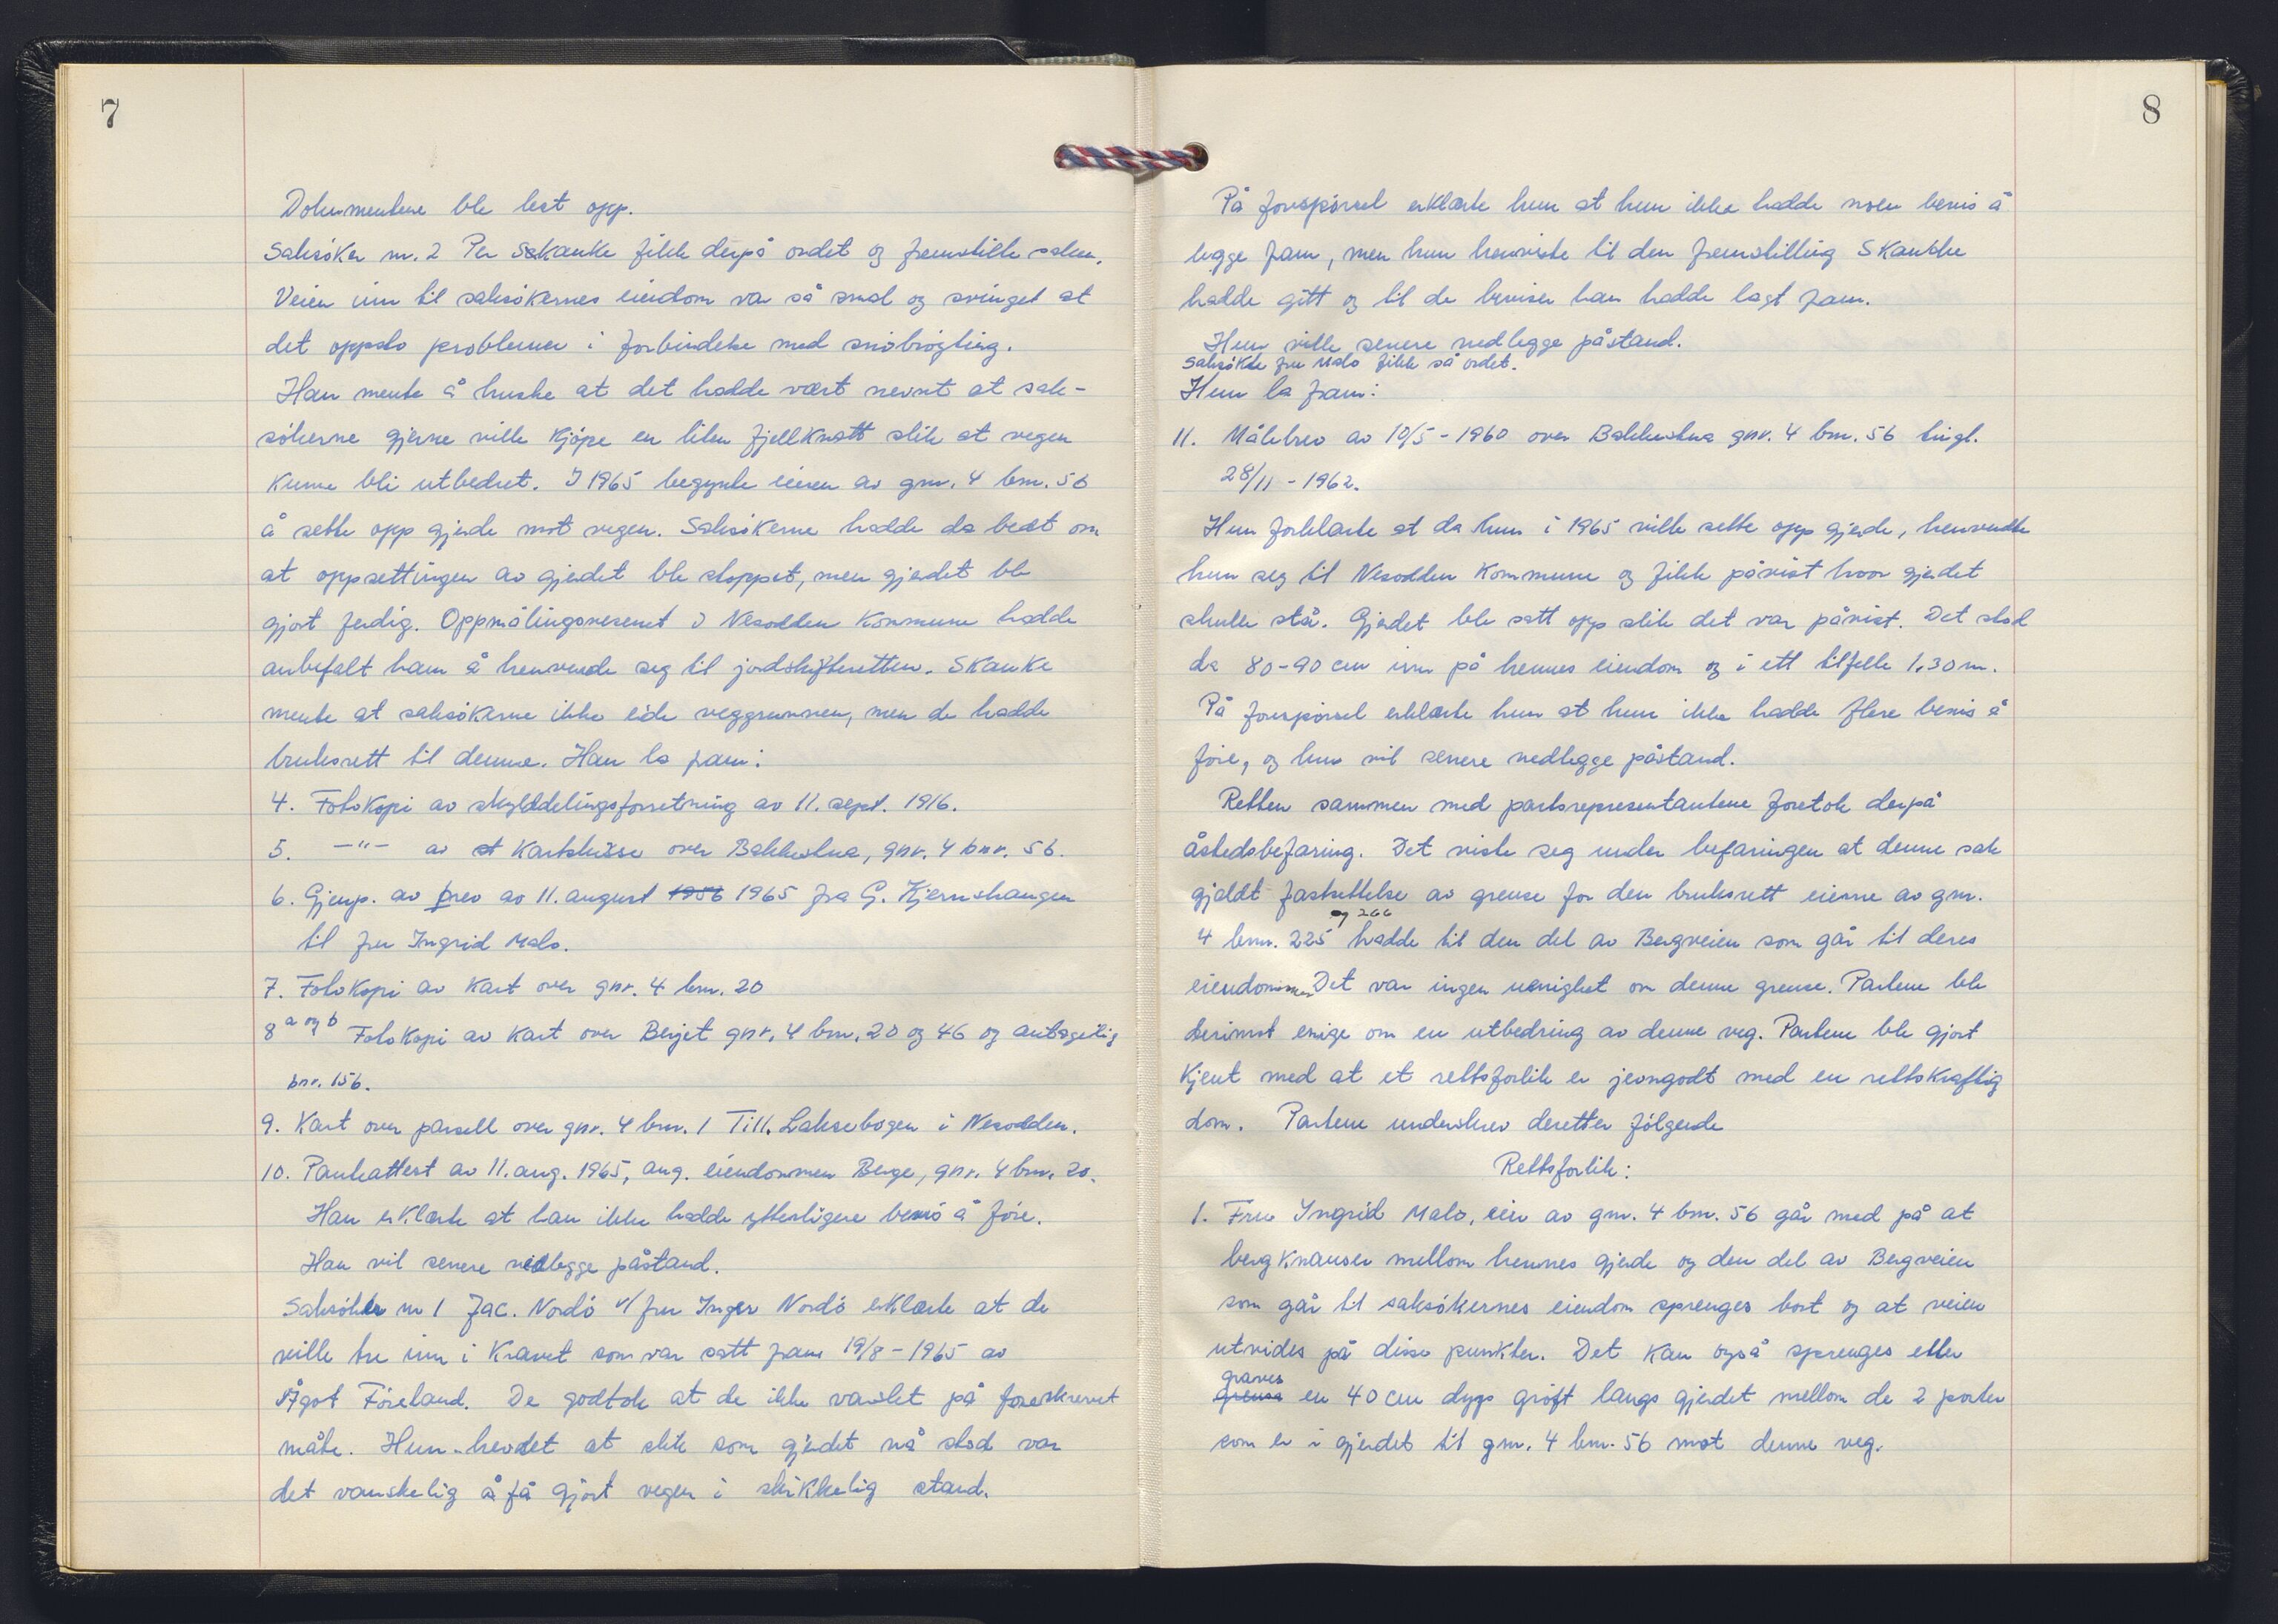 7
Dokumentene ble lest opp.
Saksøker nr. 2 Per Skanke fikk derpå ordet og fremstille saken.
Veien inn til saksøkernes eiendom var så smal og svinget at
det oppsto problemer i forbindelse med snøbrøyting.
Han mente å huske at det hadde vært nevnt at sak-
søkerne gjerne ville kjøpe en liten fjellknatt slik at vegen
kunne bli utbedret. I 1965 begynte eieren av gnr. 4 bnr. 56
å sette opp gjerde mot vegen. Saksøkerne hadde da bedt om
at oppsettingen av gjerdet ble stoppet, men gjerdet ble
gjort ferdig. Oppmålingsvesenet i Nesodden kommune hadde
anbefalt ham å henvende seg til jordskifteretten. Skanke
mente at saksøkerne ikke eide veggrunnen, men de hadde
bruksrett til denne. Han la fram:
4. Fotokopi av skylddelingsforretning av 11. sept. 1916.
5. -"- av kartskisse over Bakkestua, gnr. 4 bnr. 56.
6. Gjenp. av brev av 11. august 1956 1965 fra G. Kjernshaugen
til fru Ingrid Malo.
7. Fotokopi av kart over gnr. 4 bnr. 20
8 a og b Fotokopi av kart over Berget gnr. 4 bnr. 20 og 46 og antagelig
bnr. 156.
9. Kart over parsell over gnr. 4 bnr. 1 Till. Laksebogen i Nesodden.
10. Panteattest av 11. aug. 1965, ang. eiendommen Berge, gnr. 4 bnr. 20.
Han erklærte at han ikke hadde ytterligere bevis å føre.
Han vil senere nedlegge påstand.
Saksøker nr 1 Jac. Nordö v/ fru Inger Nordö erklærte at de
ville tre inn i kravet som var satt fram 19/8-1965 av
Ågot Föreland. De godtok at de ikke varslet på foreskrevet
måte. Hun hevdet at slik som gjerdet nå stod var
det vanskelig å få gjort vegen i skikkelig stand.
8
På forespørsel erklærte hun at hun ikke hadde noen bevis å
legge fram, men hun henviste til den fremstilling Skanke
hadde gitt og til de beviser han hadde lagt fram.
Hun ville senere nedlegge påstand.
Saksøkte fru Malo fikk så ordet.
Hun la fram:
11. Målebrev av 10/5-1960 over Bakkestua gnr. 4 bnr. 56 tingl.
28/11-1962.
Hun forklarte at da hun i 1965 ville sette opp gjerde, henvendte
hun seg til Nesodden kommune og fikk påvist hvor gjerdet
skulle stå. Gjerdet ble satt opp slik det var påvist. Det stod
da 80-90 cm inn på hennes eiendom og i ett tilfelle 1.30 m.
På forespørsel erklærte hun at hun ikke hadde flere bevis å
føre, og hun vil senere nedlegge påstand.
Retten sammen med partsrepresentantene foretok derpå
åstedsbefaring. Det viste seg under befaringen at denne sak
gjaldt fastsettelse av grense for den bruksrett eierne av gnr.
4 bnr. 225 og 266 hadde til den del av Bergveien som går til deres
eiendommer Det var ingen uenighet om denne grense. Partene ble
derimot enige om en utbedring av denne veg. Partene ble gjort
kjent med at et rettsforlik er jevngodt med en rettskraftig
dom. Partene underskrev deretter følgende
Rettsforlik:
1. Fru Ingrid Malo, eier av gnr. 4 bnr. 56 går med på at
bergknauser mellom hennes gjerde og den del av Bergveien
som går til saksøkernes eiendom sprenges bort og at veien
utvides på disse punkter. Det kan også sprenges eller
graves
grense en 40 cm dyp grøft langs gjerdet mellom de 2 porter
som er i gjerdet til gnr. 4 bnr. 56 mot denne veg.